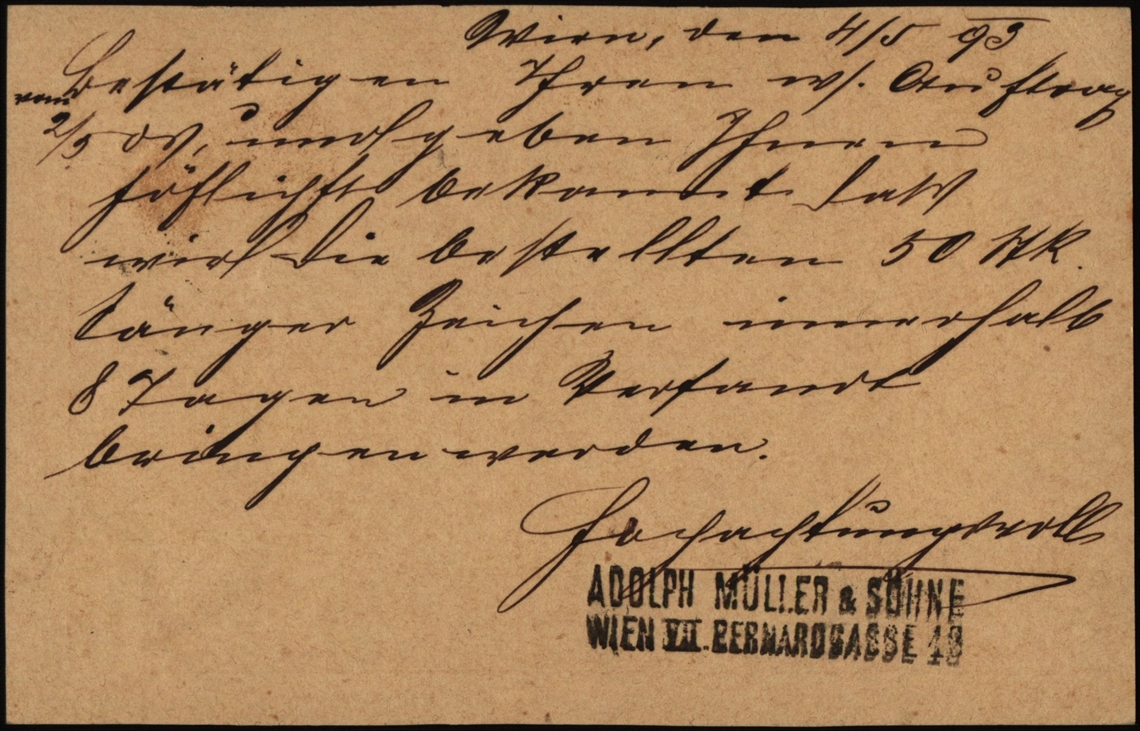 Wien, den 4/5 93
Bestätigen Ihren w/. Auftrag
vom
2/5 ds, und geben Ihnen
höflichst bekannt daß
wir die bestellten 50 Stk.
Sänger Zeichen innerhalb
8 Tagen in Versandt
bringen werden.
Hochachtungsvoll
ADOLPH MÜLLER & SÖHNE
WIEN VII. BERNARDGASSE